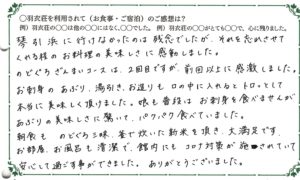 ○羽衣荘を利用されて(お食事・ご宿泊)のご感想は?
例)羽衣荘の○○は他の○○にはなく、○○でした。 例)羽衣荘の○○がとても○○で、心に残りました。
琴引浜に行けなかったのは残念でしたが、それを忘れさせて
くれる程のお料理の美味しさに感動しました。
のどぐろざんまいコースは、2回目ですが、前回以上に感激しました。
お刺身のあぶり、湯引き、お造りも口の中に入れるとトロッとして
本当に美味しく頂けました。娘も普段はお刺身を食べませんが
あぶりの美味しさに驚いて、パクパク食べていました。
朝食ものどぐろ三昧、釜で炊いた御米を頂き、大満足です。
お部屋、お風呂も清潔で、館内にもコロナ対策が施されていて
安心して過ごす事ができました。ありがとうございました。